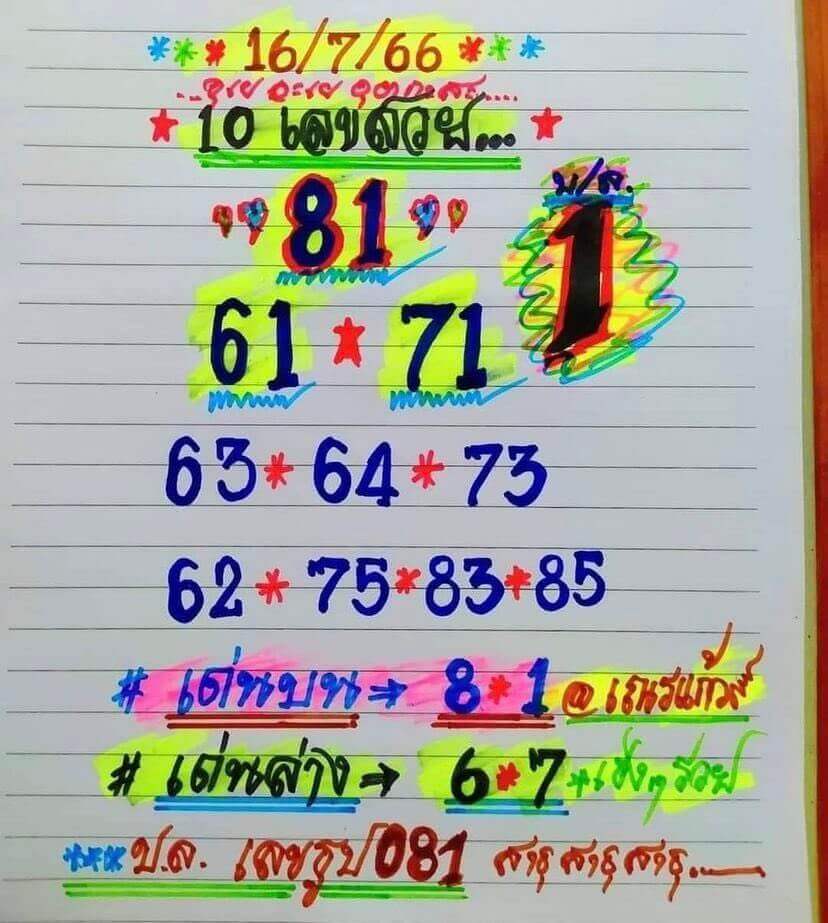 ***16/7/66***
★ 10 เลขสวย... ★
"81"
บ/ล.
1
61 ★ 71
63*64*73
62*75*83*85
# เด่นบน→ 8*1 @เณรแก้ว
# เด่นล่าง→ 6*7 *เฮงๆรวย
*** ป.ล. เลขธูป 081 สาธุ สาธุ สาธุ......